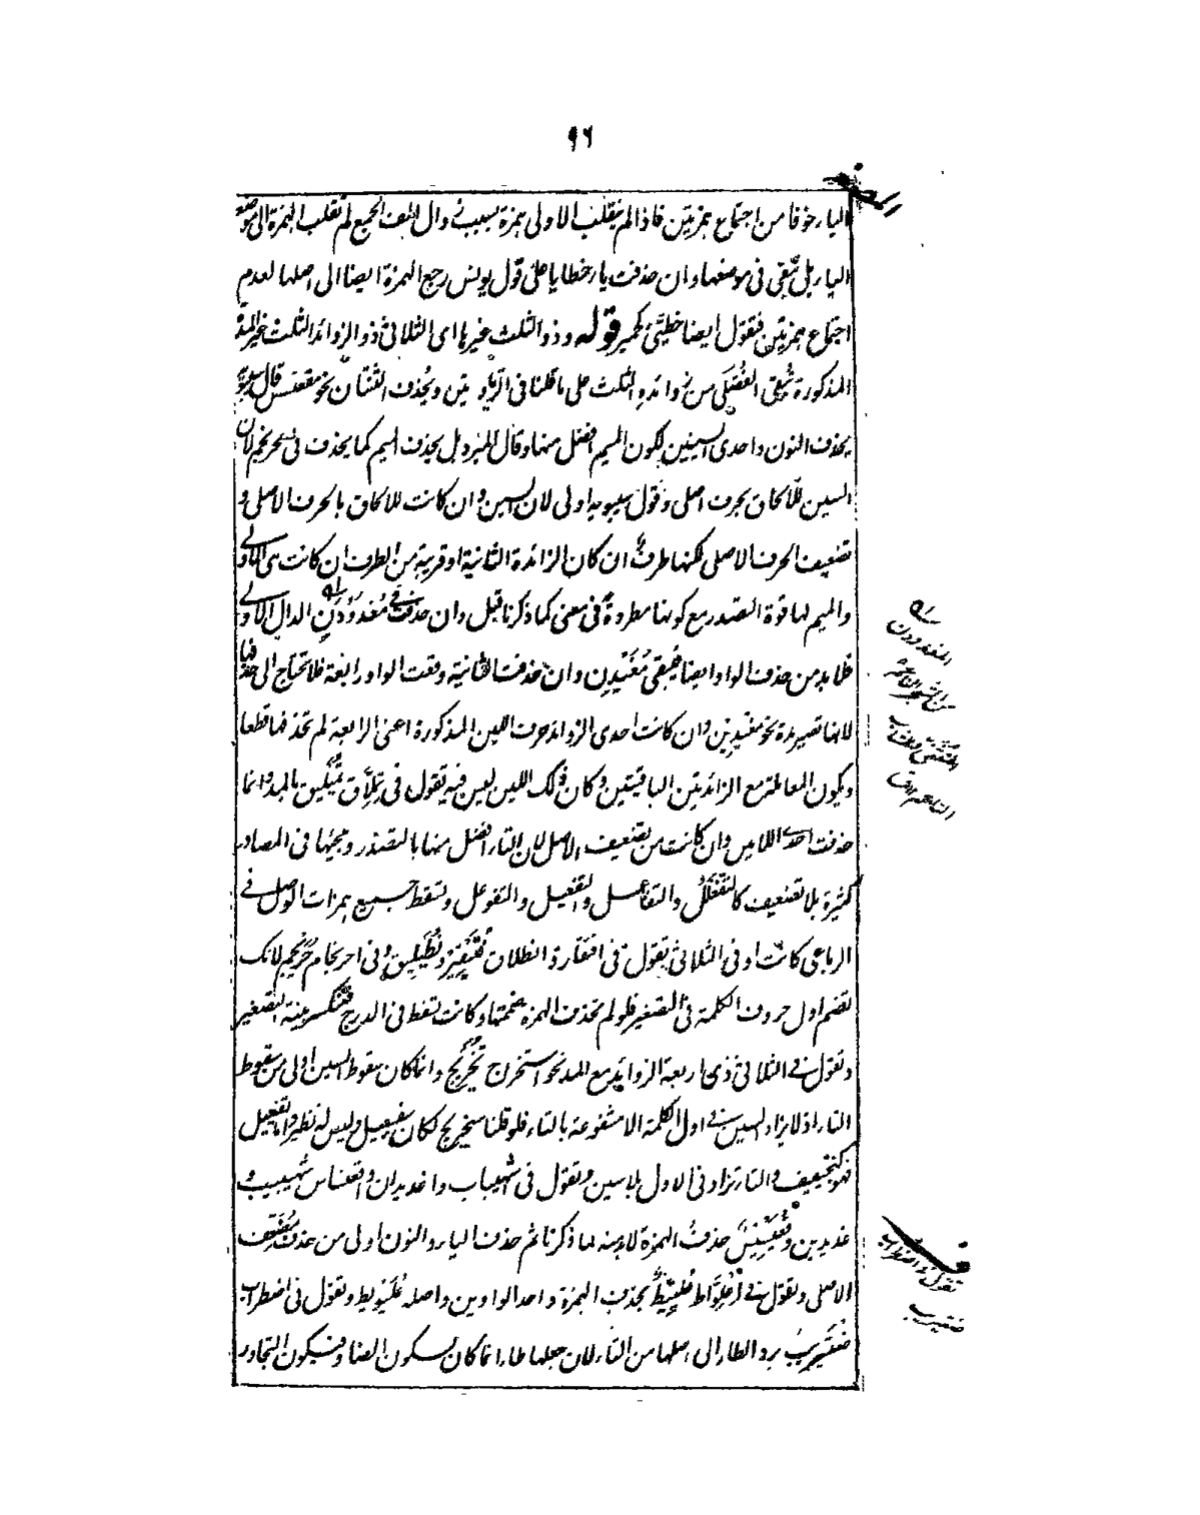 ٩٦
الياء خوفا من اجتماع همزتين فاذا لم يقلب الاولى همزة بسبب زوال الف الجمع لم تقلب الهمزة الى موضع
الياء بل تبقى فى موضعها وان حذفت ياء خطايا على قول يونس رجع الهمزة ايضا الى اصلها لعدم
اجتماع همزتين فتقول ايضا خطيئ كحمير قوله وذو الثلث غيرها اى الثلاثى ذو الزوائد الثلث غير المدة
المذكورة تبقى الفضلى من زوائده الثلث على ما قلنا فى الزيادتين ويحذف الثنتان نحو مقعنسس قال سيبويه
يحذف النون واحدى السينين لكون الميم افضل منها وقال المبرد بل يحذف الميم كما يحذف فى محرنجم لان
السين للالحاق بحرف اصلى وقول سيبويه اولى لان السين وان كانت للالحاق بالحرف الاصلى و
تضعيف الحرف الاصلى لكنها طرف ان كان الزائدة الثانية او قريبة من الطرف ان كانت هى الاولى
والميم لها قوة التصدر مع كونها مطردة فى معنى كما ذكرنا قبل وان حذفت فى مغدودن الدال الاولى
فلا بد من حذف الواو ايضا فيبقى مغيدن وان حذفت الثانية وقعت الواو رابعة فلا تحتاج الى حذفها
لانها تصير مدة نحو مغيدين وان كانت احدى الزوائد حرف اللين المذكورة اعنى الرابعة لم تحذفها قطعا
ويكون المعاملة مع الزائدتين الباقيتين وكان ذلك اللين ليس فيه تقول فى تملاق تميليق بالمد وانما
حذفت احد اللامين وان كانت من تضعيف الاصل لان التاء افضل منها بالتصدر ومجيئها فى المصادر
كثيرة بلا تضعيف كالتفعلل والتفاعل والتفعيل والتفوعل وتسقط جميع همزات الوصل فى
الرباعى كانت او فى الثلاثى تقول فى افتقار وانطلاق فتيقير ونطيليق وفى احرنجام حريجيم لانك
تضم اول حروف الكلمة فى التصغير فلو لم تحذف الهمزة ضممتها وكانت تسقط فى الدرج فتنكسر بنية التصغير
وتقول فى الثلاثى ذى اربعة الزوائد مع المد نحو استخراج تخيريج وانما كان سقوط السين اولى من سقوط
التاء اذ لا يزاد السين فى اول الكلمة الا مشفوعة بالتاء فلو قلنا سخيريج لكان سفيعيل وليس له نظير واما تفيعيل
فهو كتجيفيف والتاء تزاد فى الاول بلا سين وتقول فى اشهيباب واغديدان واقعنساس شهيبيب و
غديدين وقعيسيس حذفت الهمزة لا بد منه لما ذكرنا ثم حذف الياء والنون اولى من حذف مضعف
الاصلى وتقول فى اعلواط عليط بحذف الهمزة واحد الواوين واصله عليويط وتقول فى اضطراب
ضتيريب برد الطاء الى اصلها من التاء لان جعلها طاء انما كان لسكون الضاد فيكون التجاور
المغدودن
تقول فى اضطراب
ضتيريب